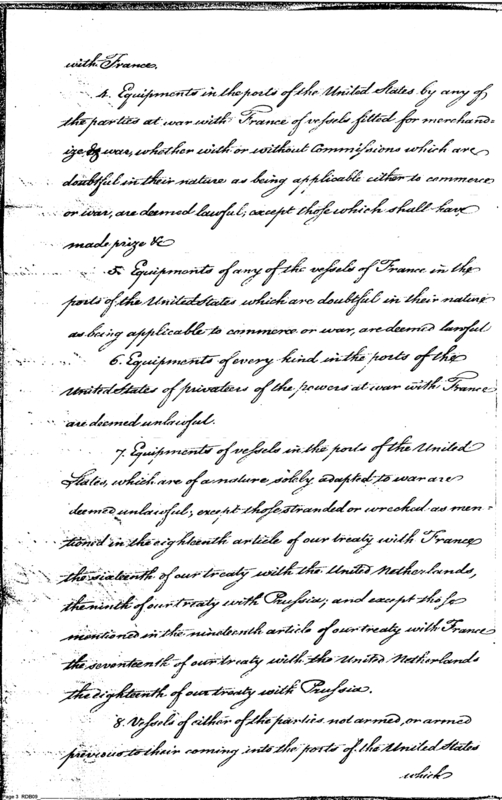 with France.
4. Equipments in the ports of the United States by any of
the parties at war with France of vessels fitted for merchand-
ize & war, whether with or without Commissions which are
doubtful in their nature as being applicable either to commerce
or war, are deemed lawful; except those which shall have
made prize &c
5. Equipments of any of the vessels of France in the
ports of the United States which are doubtful in their nature
as being applicable to commerce or war, are deemed lawful
6. Equipments of every kind in the ports of the
United States of privateers of the powers at war with France
are deemed unlawful.
7. Equipments of vessels in the ports of the United
States, which are of a nature solely adapted to war are
deemed unlawful; except those stranded or wrecked as men-
tioned in the eighteenth article of our treaty with France
the sixteenth of our treaty with the United Netherlands,
the ninth of our treaty with Prussia; and except those
mentioned in the nineteenth article of our treaty with France
the seventeenth of our treaty with the United Netherlands
the eighteenth of our treaty with Prussia.
8. Vessels of either of the parties not armed, or armed
previous to their coming into the ports of the United States
which
Page 3 RDB09